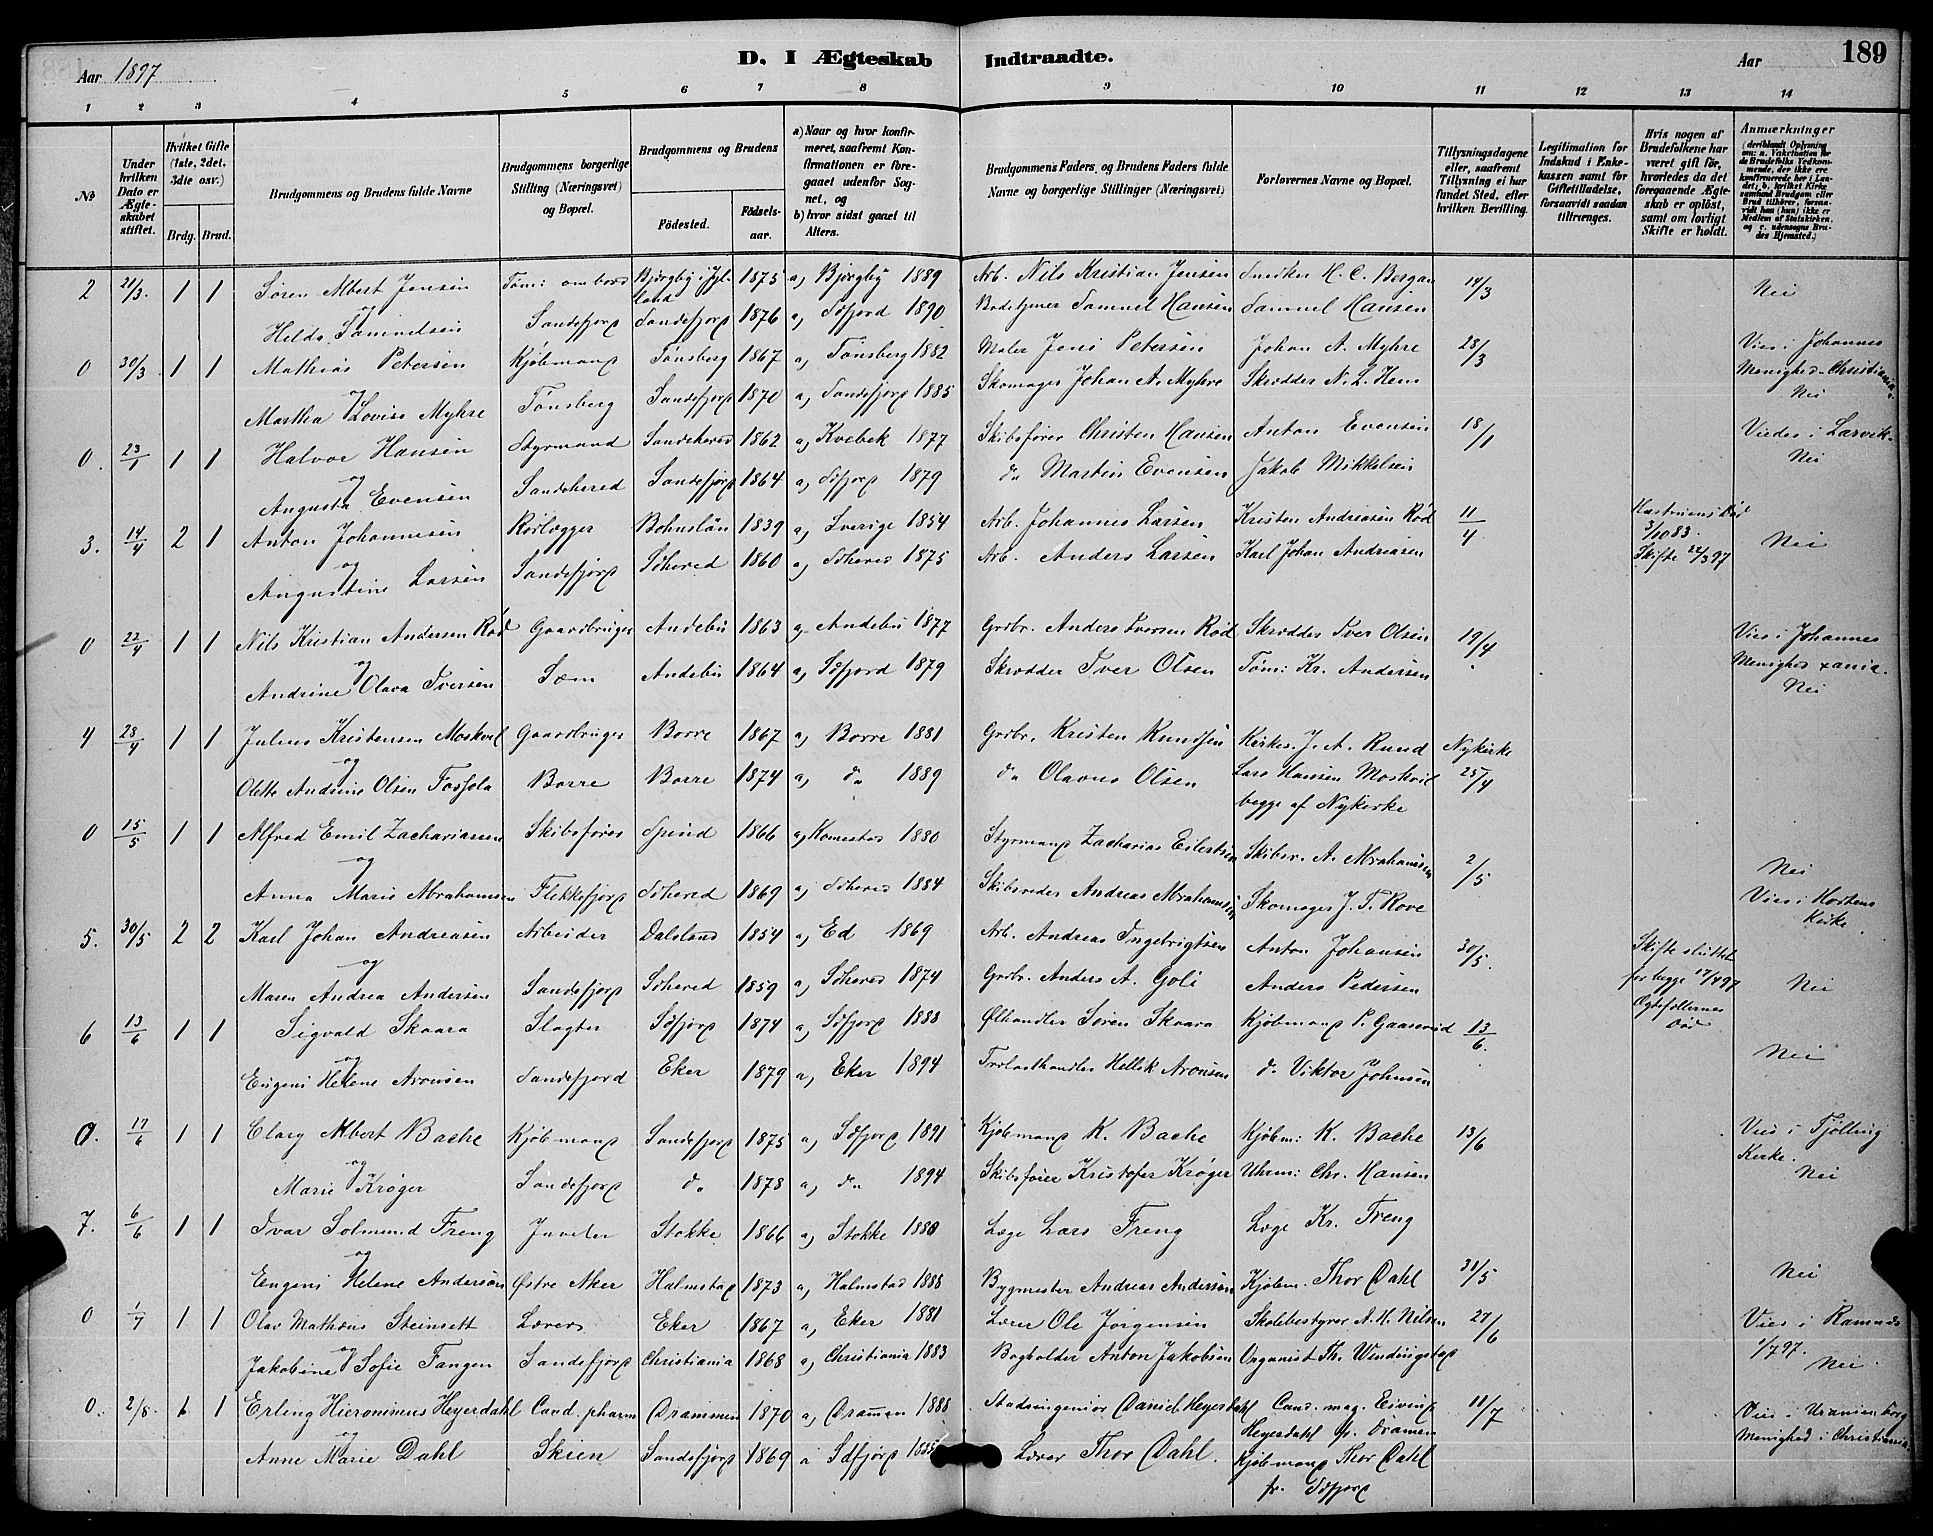 Aar 1897 D. I Ægteskab Indtraadte. Aar 189
1 2 3 4 5 6 7 8 9 10 11 12 13 14
No
Under hvilken Dato er Ægteskabet stiftet.
Hvilket Gifte (1ste, 2det, 3die osv.)
Brdg. Brud.
Brudgommens og Brudens fulde Navne
Brudgommens borgerlige Stilling (Næringsvei) og Bopæl.
Brudgommens og Brudens
Fødested. Fødselsaar.
a) Naar og hvor konfirmeret, saafremt Konfirmationen er foregaaet udenfor Sognet, og
b) hvor sidst gaaet til Alters.
Brudgommens Faders, og Brudens Faders fulde Navne og borgerlige Stillinger (Næringsvei)
Forlovernes Navne og Bopæl.
Tillysningsdagene eller, saafremt Tillysning ei har fundet Sted, efter hvilken Bevilling.
Legitimation for Indskud i Enkekassen samt for Giftetilladelse, forsaavidt saadan tiltrænges.
Hvis nogen af Brudefolkene har været gift før, hvorledes da det foregaaende Ægteskab er opløst, samt om lovligt Skifte er holdt.
Anmærkninger (deriblandt Oplysning om: a. Vakcination for de Brudefolks Vedkommende, der ikke ere konfirmerede her i Landet; b. hvilket Kirkesamfund Brudgom eller Brud tilhører, forsaavidt han (hun) ikke er Medlem af Statskirken, og c. udensogns Brudes Hjemsted.)
2 21/3. 1 1 Søren Albert Jensen Tøm: ombord Bjergby i Jylland 1875 a, Bjergby 1889 Arb. Nils Kristian Jensen Snedker H. C. Bergan 14/3 Nei
og
Helda Samuelsen Sandefjord Sandefjord 1876 a, Sdfjord 1890 Badetjener Samuel Hansen Samuel Hansen
0 30/3 1 1 Mathias Petersen Kjøbmand Tønsberg 1867 a, Tønsberg 1882 Maler Jens Petersen Johan A. Myhre 28/3 Vies i Johannes Menighed Christiania.
og
Martha Lovise Myhre Tønsberg Sandefjord 1870 a, Sandefjord 1885 Skomager Johan A. Myhre Skrædder N. L. Hem Nei
0. 23/1 1 1 Halvor Hansen Styrmand Sandeherred 1862 a, Kvebek 1877 Skibsfører Christen Hansen Anton Evensen 18/1 Viedes i Larvik.
og
Augusta Evensen Sandeherred Sandefjord 1864 a, Sdfjord 1879 do Martin Evensen Jakob Mikkelsen Nei
3. 14/4 2 1 Anton Johannesen Rørlægger Bohuslän 1839 a, Sverige 1854 Arb. Johannes Larsen Kristen Andreasen Rød 11/4 Hustruens Død 3/10 83. Skifte 22/3 97 Nei
og
Augustine Larsen Sandefjord Sdherred 1860 a, Sdherred 1875 Arb. Anders Larsen Karl Johan Andreasen
0 22/4 1 1 Nils Kristian Andersen Rød Gaardbruger Andebu 1863 a, Andebu 1877 Grdbr. Anders Iversen Rød Skrædder Iver Olsen 19/4 Vies i Johannes Menighed xania.
og
Andrine Olava Iversen Sæm Andebu 1864 a, Sdfjord 1879 Skrædder Iver Olsen Tøm: Kr. Andersen Nei
4 28/4 1 1 Julius Kristensen Moskvil Gaardbruger Borre 1867 a, Borre 1881 Grdbr. Kristen Knudsen Kirkes. J. A. Rund Nykirke 25/4
og
Olette Andrine Olsen Fossola Borre Borre 1874 a, do 1889 do Olavus Olsen Lars Hansen Moskvil begge af Nykirke
0 15/5 1 1 Alfred Emil Zachariassen Skibsfører Spind 1866 a, 1880 Styrmand Zacharias Eilertsen Skibsr. A. Abrahamsen 2/5 Nei
og
Anna Marie Abrahamsen Flekkefjord Sdherred 1869 a, Sdherred 1884 Skibsreder Andreas Abrahamsen Skomager J. T. Rove Vies i Hortens Kirke.
5. 30/5 2 2 Karl Johan Andreasen Arbeider Dalsland 1854 a, Ed 1869 Arb. Andreas Ingebrigtsen Anton Johansen 30/5. Skifte sluttet for begge 17/4 97 Ægtefællernes Død Nei
og
Maren Andrea Andersen Sandefjord Sdherred 1859 a, Sdherred 1874 Grdbr. Anders A. Goli Anders Pedersen
6 13/6 1 1 Sigvald Skaara Slagter Sdfjord 1874 a, Sdfjord 1888 Ølhandler Søren Skaara Kjøbmand P. Gaaserud 13/6. Nei
og
Eugeni Helene Aronsen Sandefjord Eker 1879 a, Eker 1894 Trælasthandler Hellik Aronsen do Viktor Johnsen
0. 17/6 1 1 Clary Albert Bache Kjøbmand Sandefjord 1875 a, Sdfjord 1891 Kjøbmand K. Bache Kjøbm: K. Bache 13/6 Vies i Tjølling Kirke.
og
Marie Krøger Sandefjord do 1878 a, do 1894 Skibsfører Kristofer Krøger Uhrm: Chr. Hansen Nei
7. 6/6 1 1 Ivar Solmund Freng Juveler Stokke 1866 a, Stokke 1880 Læge Lars Freng Læge Kr. Freng
og
Eugeni Helene Andersen Østre Aker Halmstad 1873 a, Halmstad 1888 Bygmester Andreas Andersen Kjøbm. Thor Dahl 31/5 Nei
0 1/7 1 1 Olav Mathæus Steinsett Lærer Eker 1867 a, Eker 1881 Lærer Ole Jørgensen Skolebestyrer A. M. Nilsen 27/6 Vies i Ramnæs 1/7 97.
og
Jakobine Sofie Fangen Sandefjord Christiania 1868 a, Christiania 1883 Bogholder Anton Jakobsen Organist Th. Windingstad Nei
0. 2/8. 1 1 Erling Hieronimus Heyerdahl Cand. pharm Drammen 1870 a, Dramen 1888 Stadsingeniør Daniel Heyerdahl Cand. mag. Eivind Heyerdahl fr. Dramen 11/7 Vies i Uranienborg Menighed i Christiania
og
Anne Marie Dahl Skien Sandefjord 1869 a Sdfjord 1885 Lærer Thor Dahl. Kjøbmand Thor Dahl fr. Sdfjord